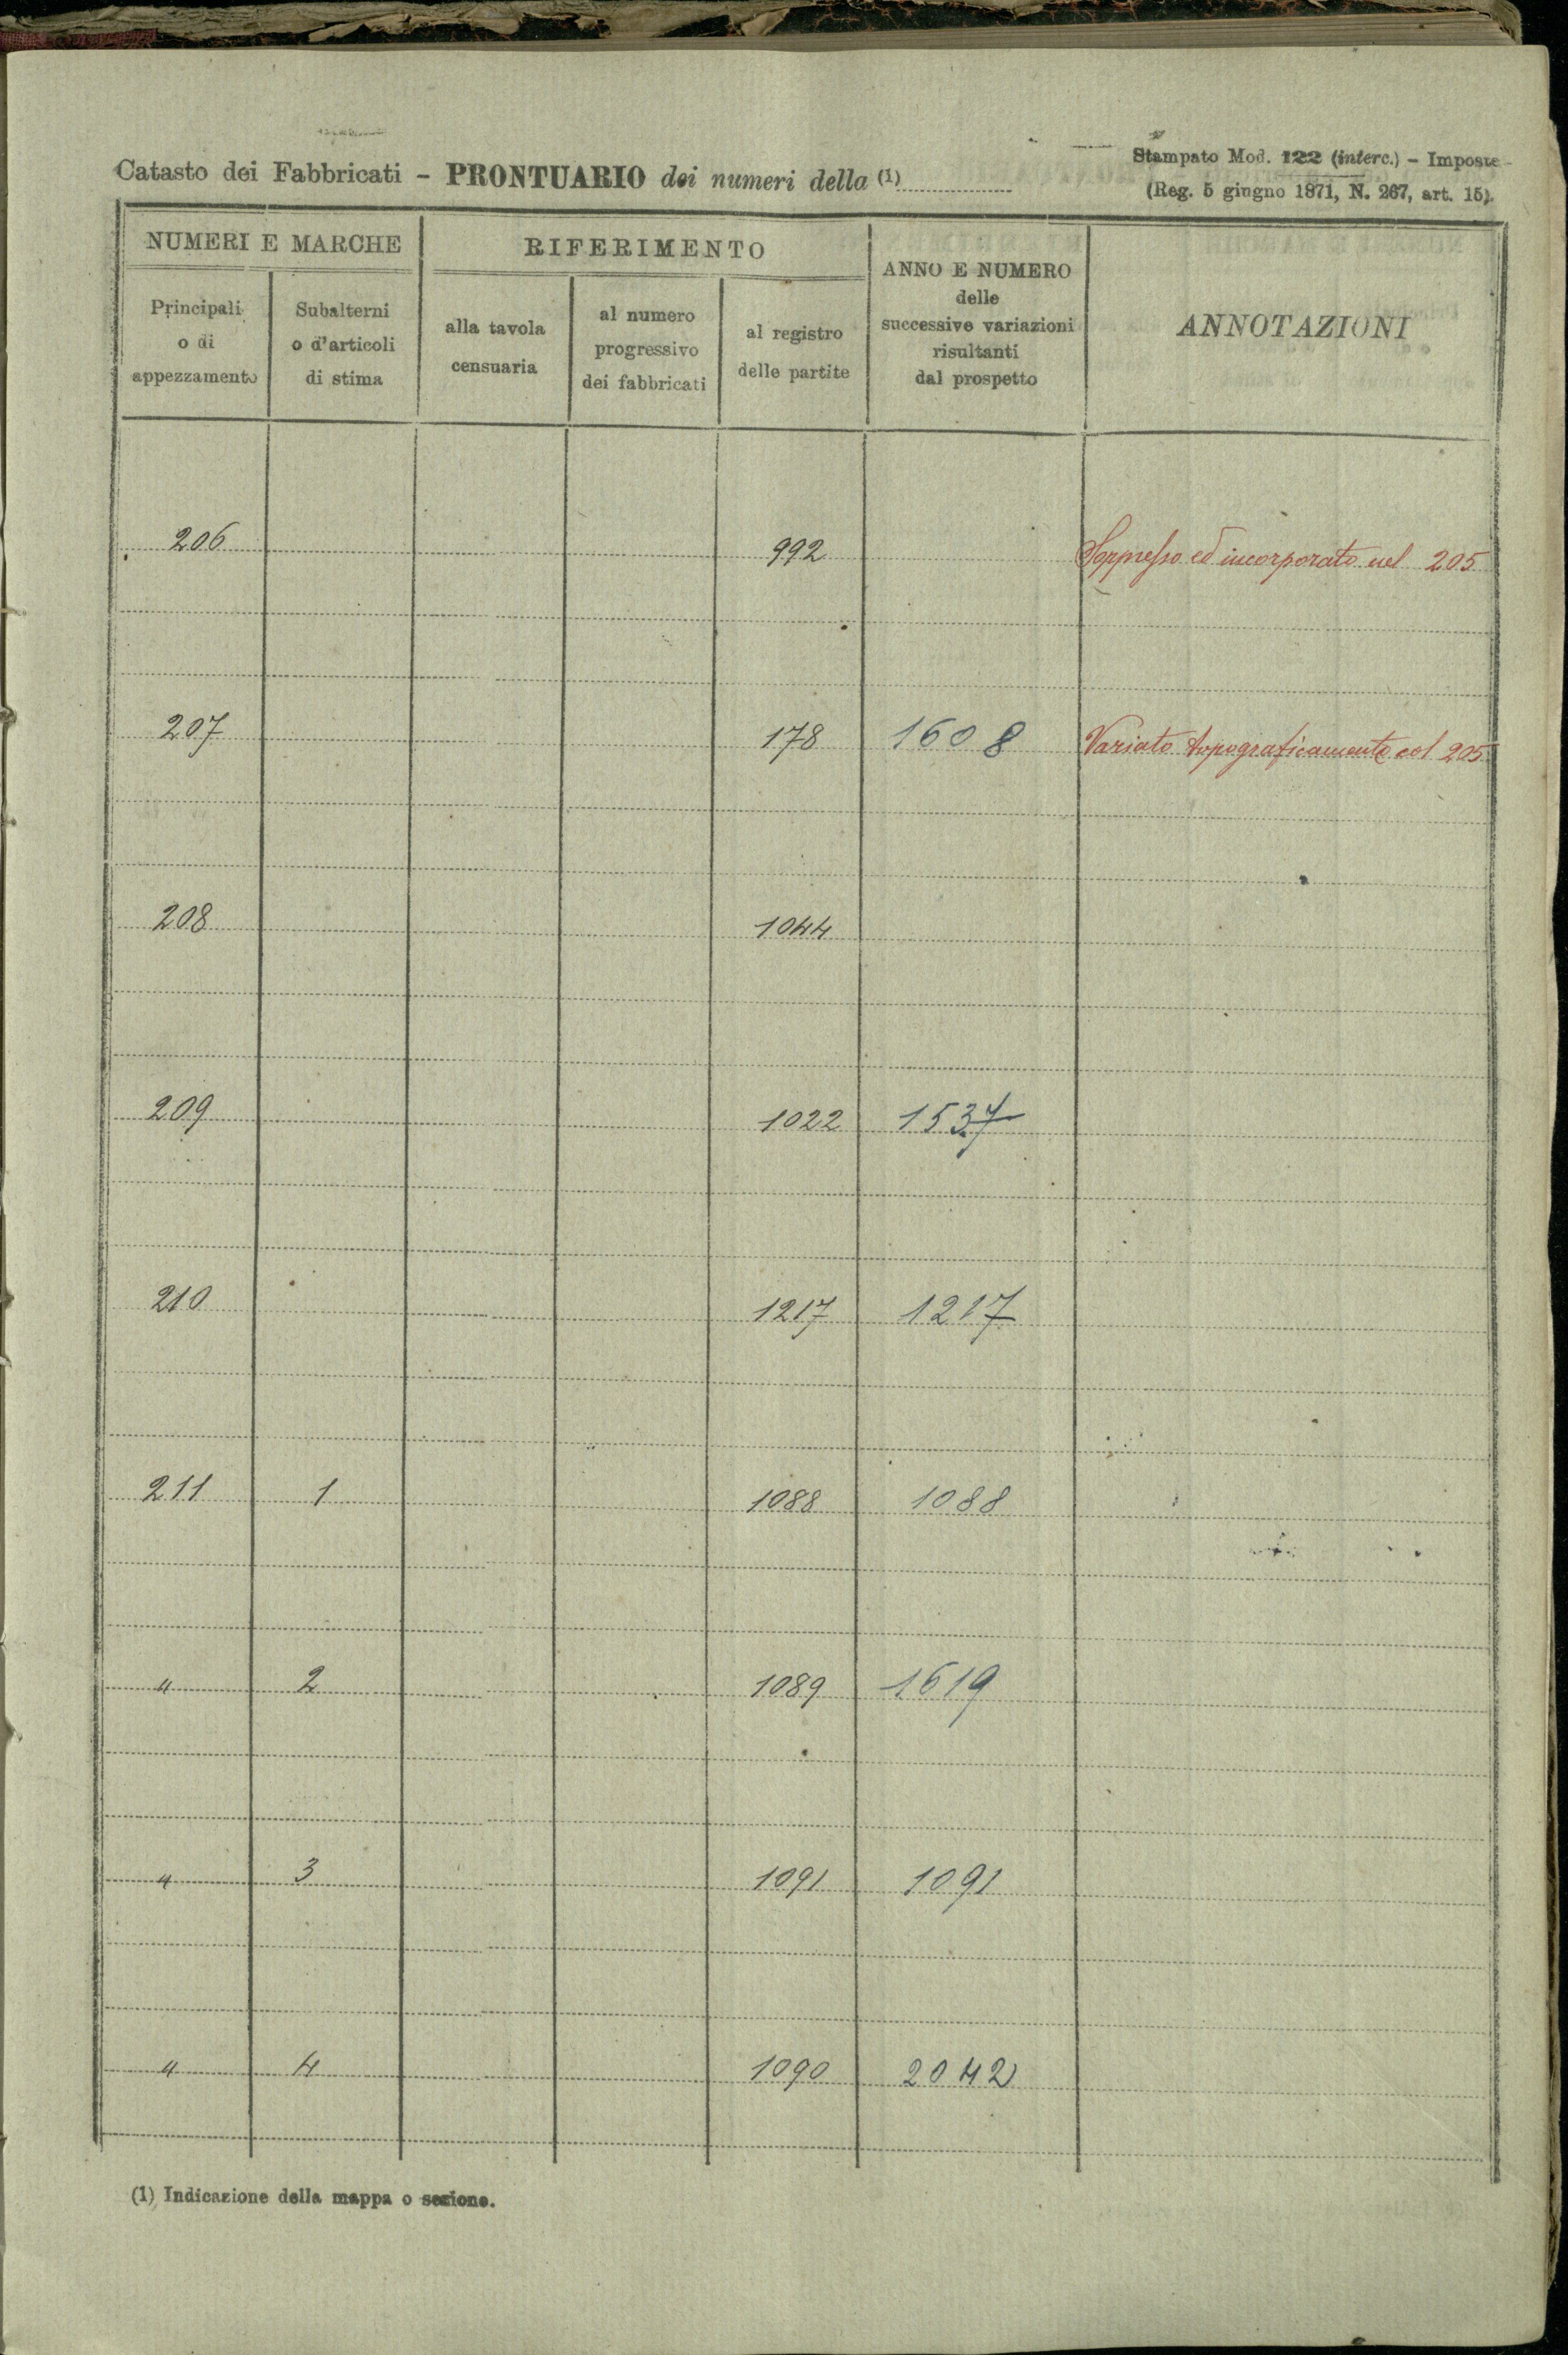 Catasto dei Fabbricati – PRONTUARIO dei numeri della (1)
Stampato Mod. 122 (interc.) – Imposte
(Reg. 5 giugno 1871, N. 267, art. 15).
NUMERI E MARCHE
RIFERIMENTO
ANNO E NUMERO
delle
successive variazioni
risultanti
dal prospetto
ANNOTAZIONI
Principali
o di
appezzamento
Subalterni
o d'articoli
di stima
alla tavola
censuaria
al numero
progressivo
dei fabbricati
al registro
delle partite
206 992 Soppresso ed incorporato nel 205
207 178 1608 Variato topograficamente col 205
208 1044
209 1022 1537
210 1217 1217
211 1 1088 1088
" 2 1089 1619
" 3 1091 1091
" 4 1090 2042
(1) Indicazione della mappa o sezione.